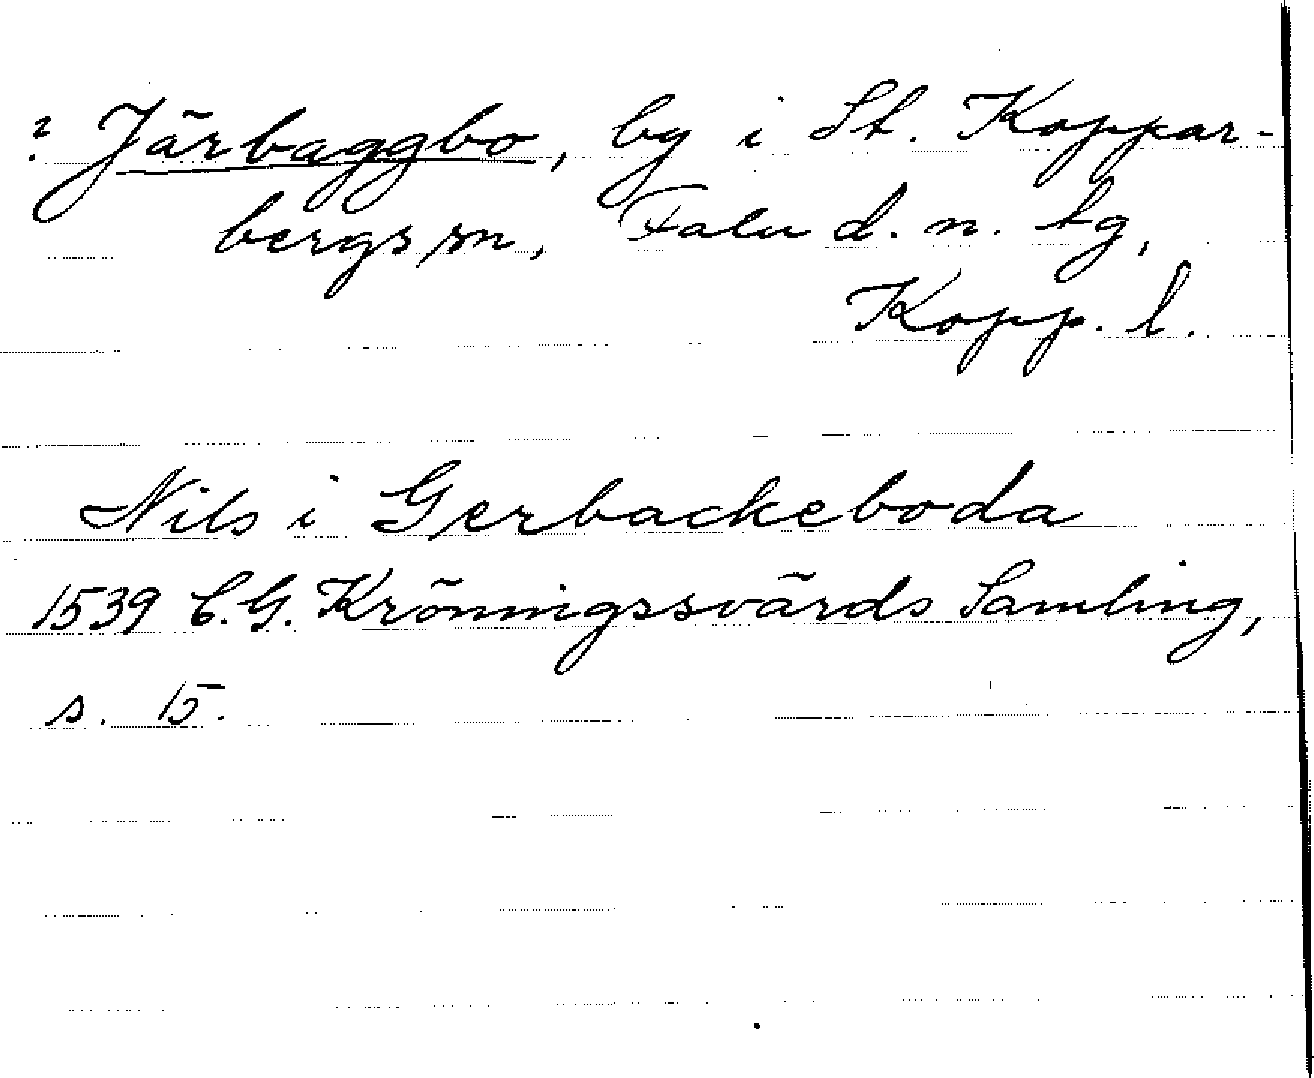 ? Järbaggbo, by i St. Koppar-
bergs sn, Falu d. n. tg,
Kopp. l.
Nils i Gerbackeboda
1539 C.G. Kröningssvärds Samling,
s. 15.